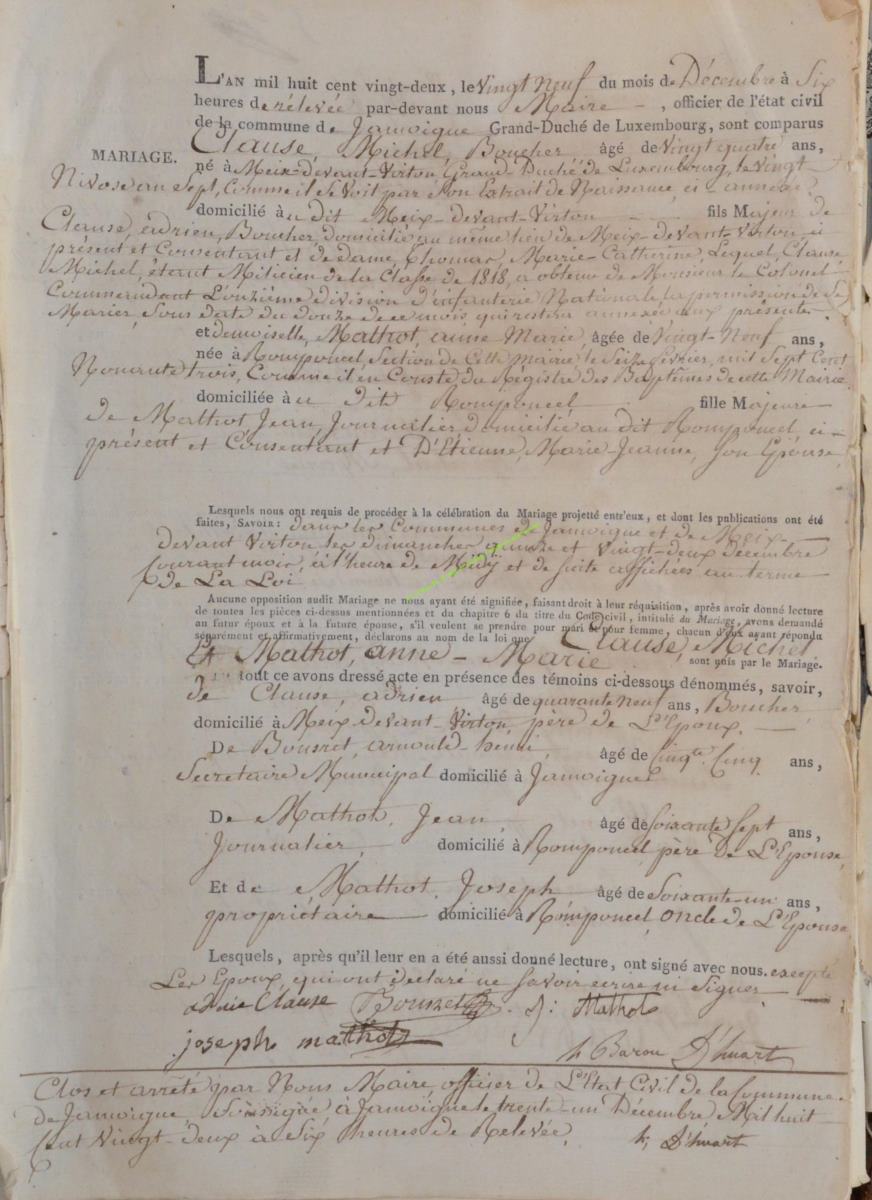 L'AN mil huit cent vingt-deux, le Vingt Neuf du mois de Décembre à Six
heures de rélevée par-devant nous Maire - , officier de l'état civil
de la commune de Jamoigne Grand-Duché de Luxembourg, sont comparus
MARIAGE.
Clause, Michel, Boucher âgé de Vingt quatre ans,
né à Meix-devant-Virton, Grand Duché de Luxembourg, le Vingt
Nivose an Sept, Comme il se Voit par son Extrait de Naissance ci annexé
domicilié àu dit Meix-devant-Virton fils Majeur de
Clause, adrien, Boucher, domicilié au même lieu de Meix-devant-Virton ci
présent et Consentant et de dame, Thomas, Marie-Catherine, Lequel, Clause
Michel, étant Milicien de la Classe de 1818, a obtenu de Monsieur le Colonel
Commandant L'onzième division d'infanterie Nationale la permission de Se
Marier, Sous date du douze de ce mois qui restera annexée aux présentes
et demoiselle, Mathot, anne Marie, âgée de Vingt-Neuf ans,
née à Romponcel, Section de Cette Mairie le Seize février, mil Sept Cent
Nonante trois, Comme il en Conste du Régistre des Baptêmes de cette Mairie
domiciliée àu dit Romponcel fille Majeure
de Mathot, Jean, Journalier, domicilié au dit Romponcel, ci-
présent et Consentant et D'Etienne, Marie-Jeanne, Son Epouse
Lesquels nous ont requis de procéder à la célébration du Mariage projetté entr'eux, et dont les publications ont été
faites, SAVOIR: dans les Communes de Jamoigne et de Meix-
devant Virton les dimanches quinze et Vingt-deux décembre
Courant mois, à l'heure de Midÿ et de suite affichées au terme
de La Loi
Aucune opposition audit Mariage ne nous ayant été signifiée, faisant droit à leur réquisition, après avoir donné lecture
de toutes les pièces ci-dessus mentionnées et du chapitre 6 du titre du Code civil, intitulé du Mariage, avons demandé
au futur époux et à la future épouse, s'il veulent se prendre pour mari et pour femme, chacun d'eux ayant répondu
séparément et affirmativement, déclarons au nom de la loi que Clause, Michel
Et Mathot, anne-Marie sont unis par le Mariage.
tout ce avons dressé acte en présence des témoins ci-dessous dénommés, savoir,
de Clause, adrien âgé de quarante neuf ans, Boucher
domicilié à Meix-devant-Virton, père de L'Epoux.
De Bousret, arnould-henri, âgé de Cinqte Cinq ans,
Secretaire Municipal domicilié à Jamoigne
De Mathot, Jean âgé de soixante Sept ans,
Journalier, domicilié à Romponcel, père de L'Epouse,
Et de Mathot, Joseph âgé de Soixante-un ans,
propriétaire domicilié à Romponcel, Oncle de L'Epouse
Lesquels, après qu'il leur en a été aussi donné lecture, ont signé avec nous. excepté
Les Epoux, qui ont declaré ne Savoir ecrire ni Signer
Clause Bousret J: Mathot
joseph mathot
h Baron D'huart
Clos et arrêté par Nous Maire, officier de L'Etat Civil de la Commune
de Jamoigne, Soussigné à Jamoigne le trente-un Décembre Mil huit
Cent Vingt-deux à Six heures de Relevée, h, D'huart